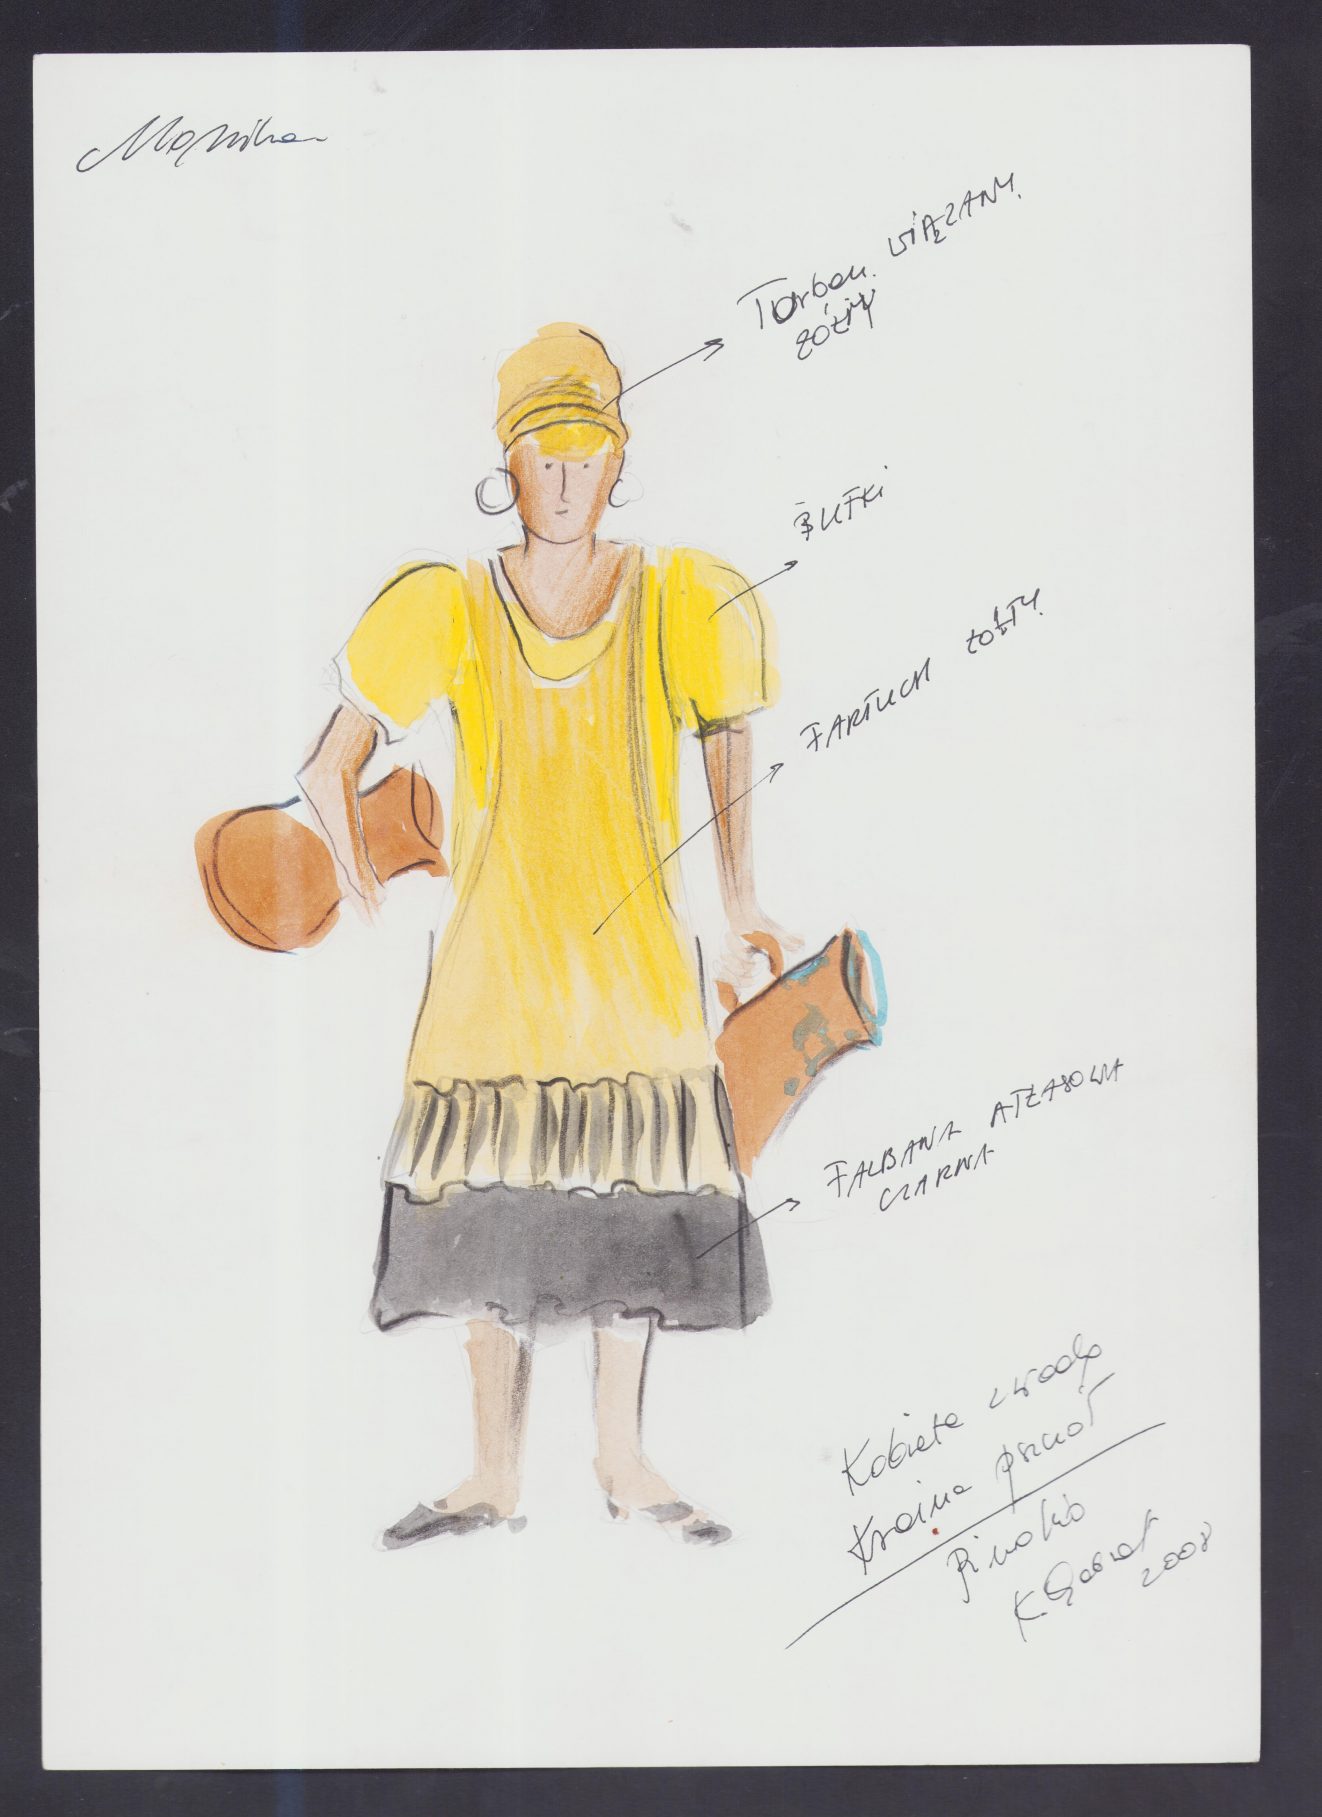 Monika
Turban wiązany
żółty
BUFKI
FARTUCH żółty
FALBANA ATŁASOWA
CZARNA
Kobieta z wodą
Kraina pszczół
Pinokio
K. Gabrat
2008